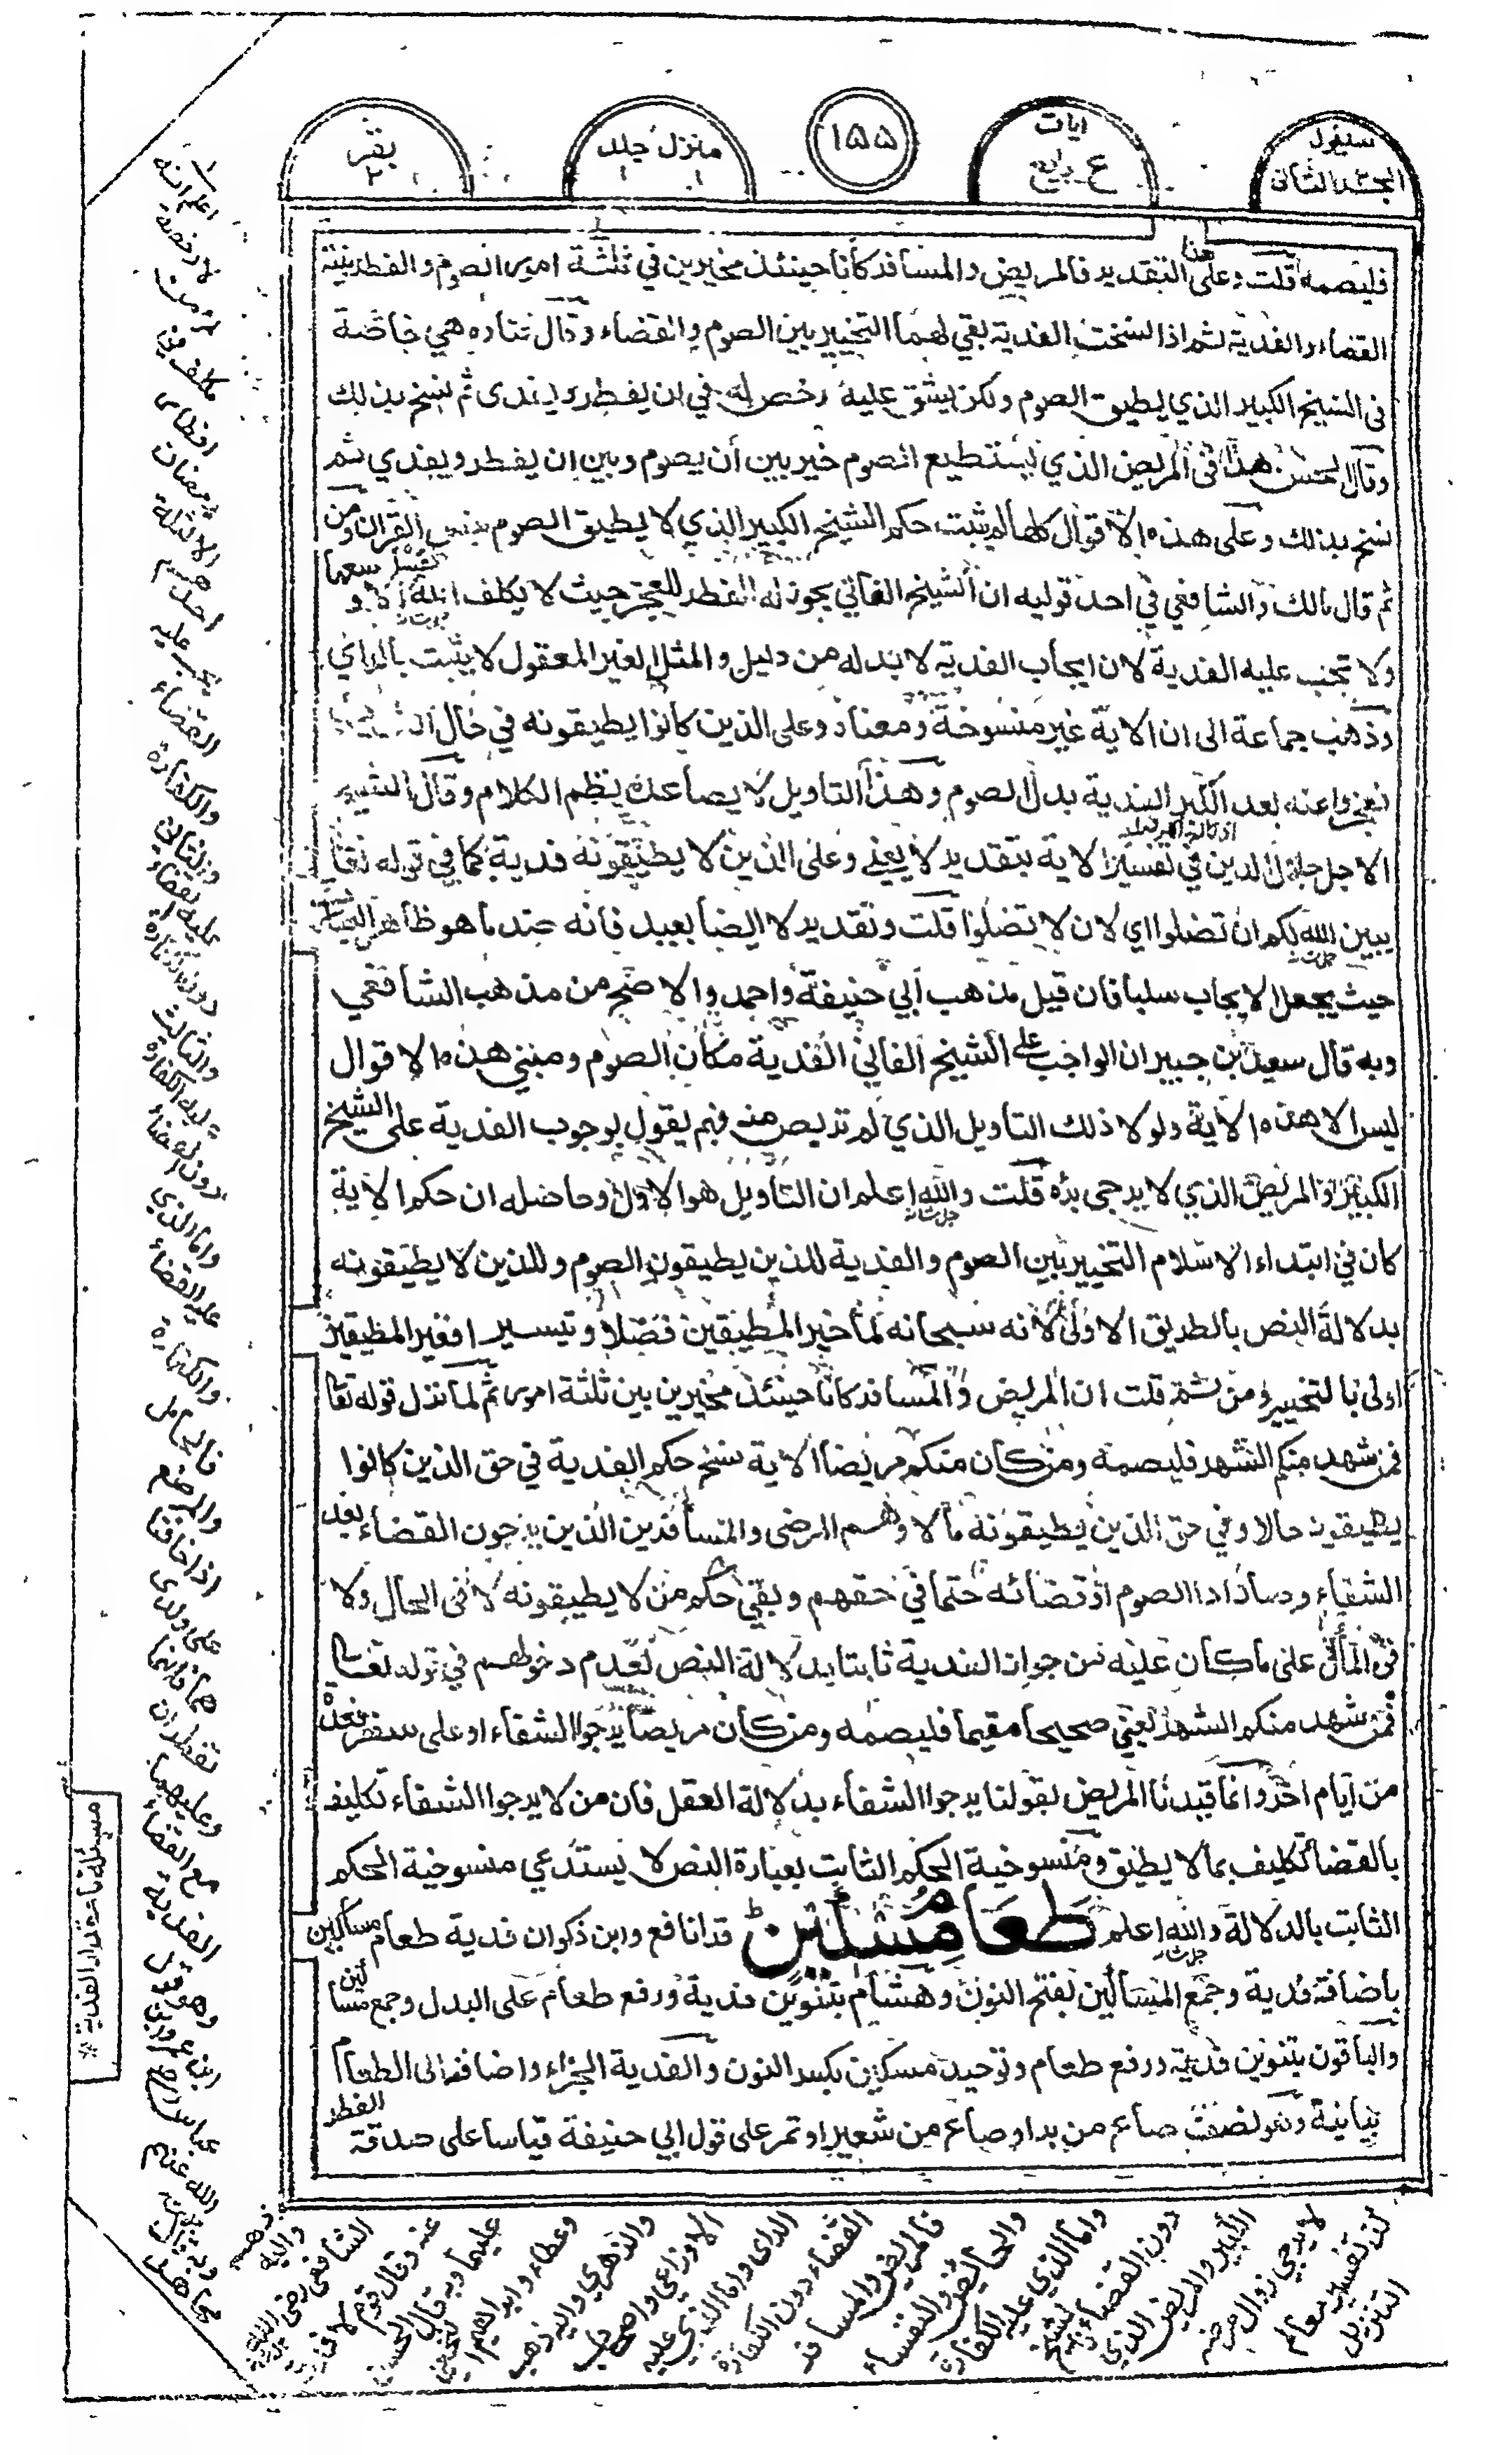 سيقول
الجزء الثانى
ايات
ع
١٥٥
منزل جلد
١ ١
بقر
٢
فليصمه قلت وعلى هذا التقدير فالمريض والمسافر كانا حينئذ مخيرين في ثلثة امور الصوم والفطر بنية
القضاء والفدية ثم اذا نسخت الفدية بقي لهما التخيير بين الصوم والقضاء وقال قتاده هي خاصة
فى الشيخ الكبير الذي يطيق الصوم ولكن يشق عليه رخص له في ان يفطر ويفدى ثم نسخ بذلك
وقال الحسن هذا فى المريض الذي يستطيع الصوم خير بين أن يصوم وبين ان يفطر ويفدي ثم
نسخ بذلك وعلى هذه الاقوال كلها لم يثبت حكم الشيخ الكبير الذي لا يطيق الصوم بنص القران ومن
ثم قال مالك والشافعي في احد قوليه ان الشيخ الفاني يجوز له الفطر للعجز حيث لا يكلف الله نفسا الا وسعها
ولا تجب عليه الفدية لان ايجاب الفدية لا بد له من دليل والمثل الغير المعقول لا يثبت بالراي
وذهب جماعة الى ان الاية غير منسوخة ومعناه وعلى الذين كانوا يطيقونه في حال الشباب
فعجزوا عنه بعد الكبر الفدية بدل الصوم وهذا التاويل لا يصاعده نظم الكلام وقال الشيخ
الاجل جلال الدين في تفسير الاية بتقدير لا يعني وعلى الذين لا يطيقونه فدية كما في قوله تعالى
يبين الله لكم ان تضلوا اي لان لا تضلوا قلت وتقدير لا ايضا بعيد فانه ضد ما هو ظاهر العبارة
حيث يجعل الايجاب سلبا فان قيل مذهب ابي حنيفة واحمد والاصح من مذهب الشافعي
وبه قال سعيد بن جبير ان الواجب على الشيخ الفاني الفدية مكان الصوم ومبنى هذه الاقوال
ليس الا هذه الاية ولولا ذلك التاويل الذي لم ترض منه فبم يقول بوجوب الفدية على الشيخ
الكبير والمريض الذي لا يرجى برءه قلت والله اعلم ان التاويل هو الاول وحاصله ان حكم الاية
كان في ابتداء الاسلام التخيير بين الصوم والفدية للذين يطيقون الصوم وللذين لا يطيقونه
بدلالة النص بالطريق الاولى لانه سبحانه لما خير المطيقين فضلا وتيسيرا فغير المطيقين
اولى بالتخيير ومن ثم قلت ان المريض والمسافر كانا حينئذ مخيرين بين ثلثة امور ثم لما نزل قوله تعالى
فمن شهد منكم الشهر فليصمه ومن كان منكم مريضا الاية نسخ حكم الفدية في حق الذين كانوا
يطيقونه حالا وفي حق الذين يطيقونه مالا وهم المرضى والمسافرين الذين يرجون القضاء بعد
الشفاء وصار اداء الصوم او قضائه حتما في حقهم وبقي حكم من لا يطيقونه لا فى الحال ولا
فى المآل على ما كان عليه من جواز الفدية ثابتا بدلالة النص لعدم دخولهم في قوله تعالى
فمن شهد منكم الشهر يعني صحيحا مقيما فليصمه ومن كان مريضا يرجوا الشفاء او على سفر فعدة
من ايام اخر وانما قيدنا المريض بقولنا يرجوا الشفاء بدلالة العقل فان من لا يرجوا الشفاء تكليفه
بالقضاء تكليف بما لا يطيق ومنسوخية الحكم الثابت بعبارة النص لا يستدعي منسوخية الحكم
الثابت بالدلالة والله اعلم طَعَامُ مَسٰكِيْنَ قرا نافع وابن ذكوان فدية طعام مساكين
باضافة فدية وجمع المساكين بفتح النون وهشام بتنوين فدية ورفع طعام على البدل وجمع مساكين
والباقون بتنوين فدية ورفع طعام وتوحيد مسكين بكسر النون والفدية الجزاء واضافة الى الطعام
بيانية وهو نصف صاع من بر او صاع من شعير او تمر على قول ابي حنيفة قياسا على صدقة الفطر
مسئلة باعتبار الفدية
اعلم انه
لا رخصة
مكلف في
افطار
رمضان
الا ثلثة
احدهم
يجب عليه
القضاء
والكفارة
والثاني
عليه القضاء
دون الكفارة
والثالث
عليه الكفارة
دون القضاء
واما الذي
عليه القضاء
والكفارة
فالحامل
والمرضع
اذا خافتا
على ولدي
هما فانهما
تفطران
وعليهما
مع القضاء
الفدية
وهو قول
ابن عمر وابن
عباس رضى
الله عنهم
وبه قال
مجاهد
واليه ذهب
الشافعي رضي الله
عنه وقال قوم لا فدية
عليهما وبه قال الحسن
وعطاء وابراهيم النخعي
والزهري واليه ذهب
الاوزاعي واصحاب
الراى واما الذي عليه
القضاء دون الكفارة
فالمريض والمسافر
والحائض والنفساء
واما الذي عليه الكفارة
دون القضاء فالشيخ
الكبير والمريض الذي
لا يرجى زوال مرضه
كذا في تفسير معالم
التنزيل